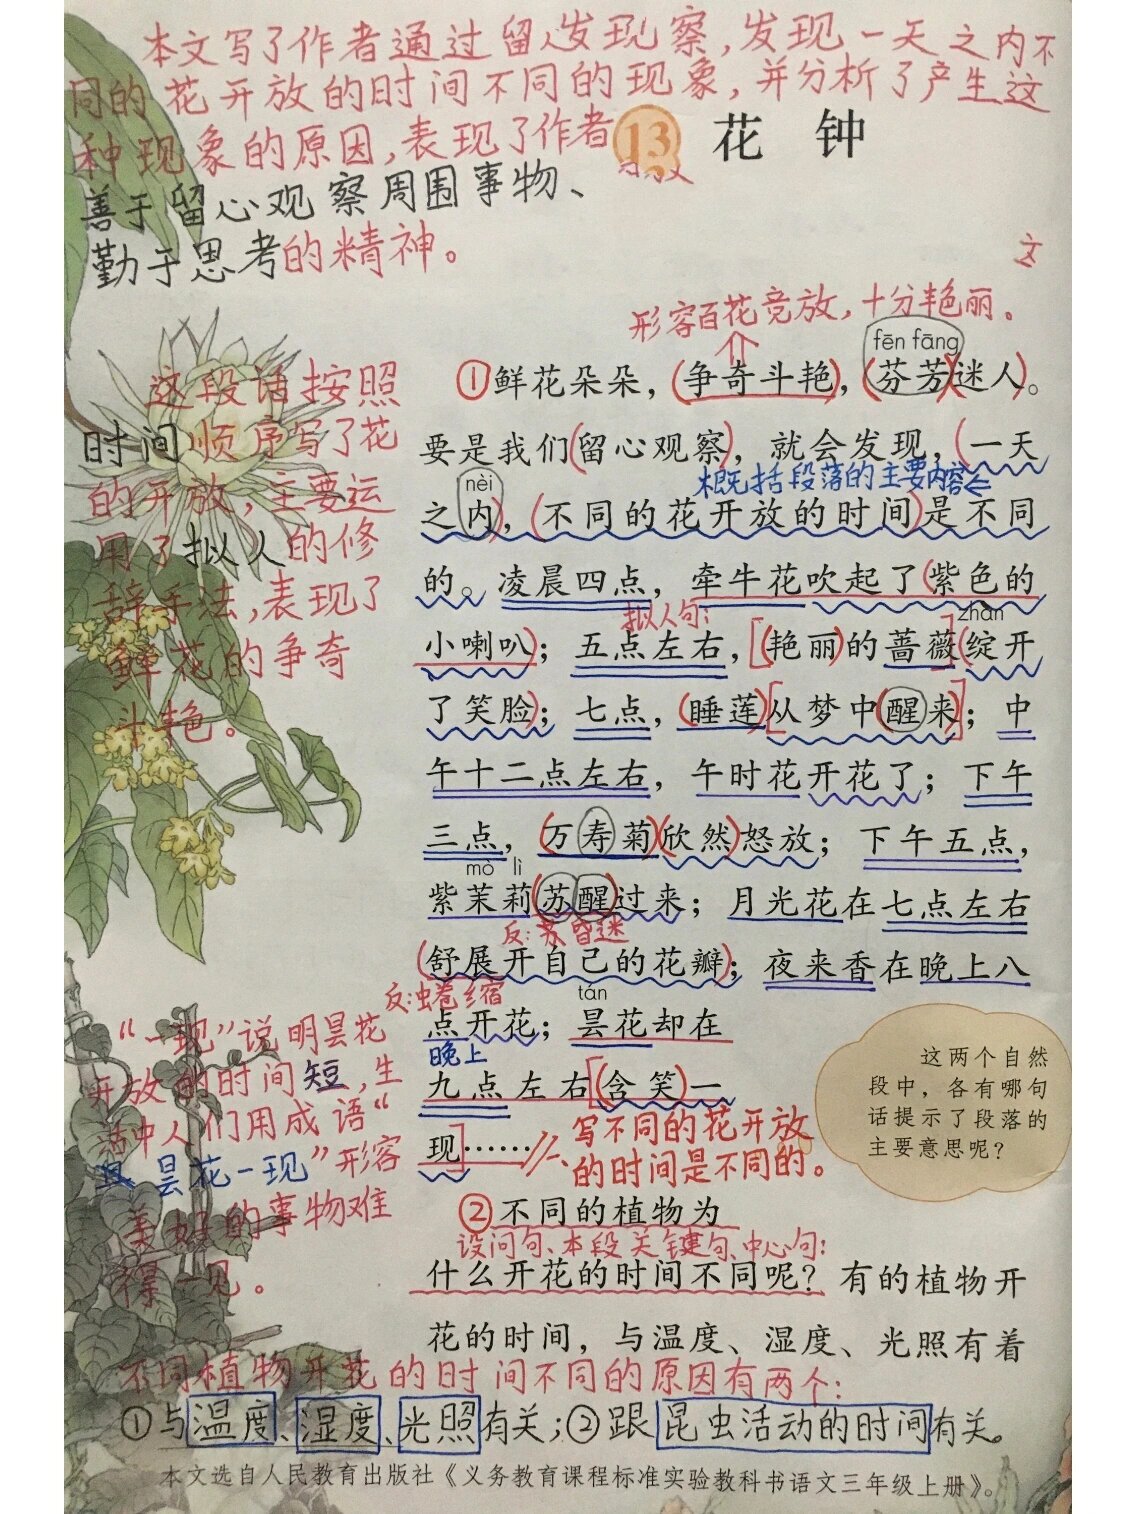 本文写了作者通过留心发现察，发现一天之内不
同的花开放的时间不同的现象，并分析了产生这
种现象的原因，表现了作者
13 花钟
善于留心观察周围事物、
勤于思考的精神。
文
形容百花竞放，十分艳丽。
fēn fāng
①鲜花朵朵，(争奇斗艳)，(芬芳)迷人)。
要是我们(留心观察)，就会发现，(一天
概括段落的主要内容
nèi
之内，(不同的花开放的时间)是不同
的。凌晨四点，牵牛花吹起了(紫色的
拟人句：
zhàn
小喇叭)；五点左右，[(艳丽)的蔷薇](绽开
了笑脸)；七点，(睡莲)[从梦中(醒来)]；中
午十二点左右，午时花开花了；下午
三点，(万寿菊)(欣然)怒放；下午五点，
mò lì
紫茉莉(苏醒)过来；月光花在七点左右
反：昏迷
(舒展开自己的花瓣)；夜来香在晚上八
反：蜷缩
tán
点开花；昙花却在
晚上
九点左右[(含笑)一
现]……
写不同的花开放
的时间是不同的。
②不同的植物为
设问句、本段关键句、中心句：
什么开花的时间不同呢？有的植物开
花的时间，与温度、湿度、光照有着
这段话按照
时间顺序写了花
的开放，主要运
用了拟人的修
辞手法，表现了
鲜花的争奇
斗艳。
“一现”说明昙花
开放的时间短，生
活中人们用成语“
昙花一现”形容
美好的事物难
得一见。
这两个自然
段中，各有哪句
话提示了段落的
主要意思呢？
不同植物开花的时间不同的原因有两个：
①与温度、湿度、光照有关；②跟昆虫活动的时间有关。
本文选自人民教育出版社《义务教育课程标准实验教科书语文三年级上册》。